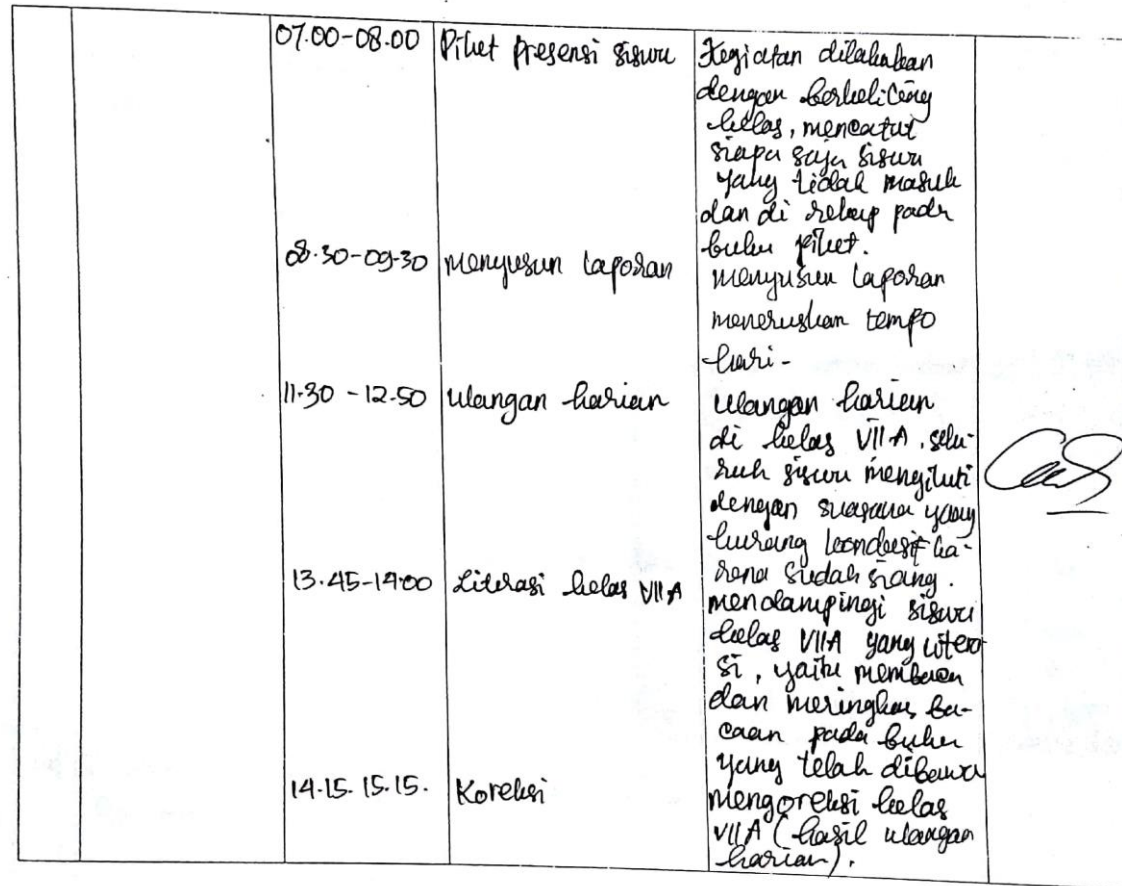 07.00-08.00 Piket presensi siswa
Kegiatan dilakukan
dengan berkeliling
kelas, mencatat
siapa saja siswa
yang tidak masuk
dan di rekap pada
buku piket.
08.30-09.30 menyusun laporan
menyusun laporan
meneruskan tempo
hari-
11.30 - 12.50 ulangan harian
ulangan harian
di kelas VII A. selu-
ruh siswa mengikuti
dengan suasana yang
kurang kondusif ka-
rena sudah siang.
13.45-14.00 Literasi kelas VII A
mendampingi siswa
kelas VIIA yang litera
si, yaitu membaca
dan meringkas ba-
caan pada buku
yang telah dibawa
14.15. 15.15. Koreksi
mengoreksi kelas
VIIA (hasil ulangan
harian).